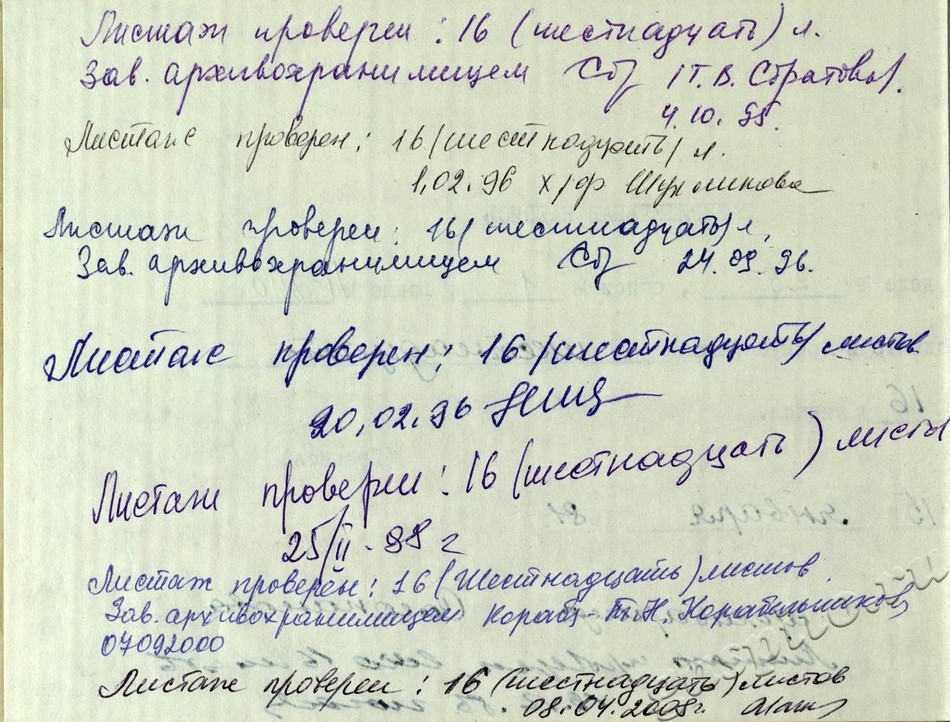 Листаж проверен: 16 (шестнадцать) л.
Зав. архивохранилищем (Т. В. Сбратова).
4.10.95.
Листаж проверен: 16 (шестнадцать) л.
1.02.96 х/ф
Листаж проверен: 16 (шестнадцать) л.
Зав. архивохранилищем 24.09.96.
Листаж проверен: 16 (шестнадцать) листов
20.02.96
Листаж проверен: 16 (шестнадцать) листа
25/II-98 г
Листаж проверен: 16 (шестнадцать) листов.
Зав. архивохранилищем Кораб Т. Н. Корабельникова
07092000
Листаж проверен: 16 (шестнадцать) листов
08.04.2008г.